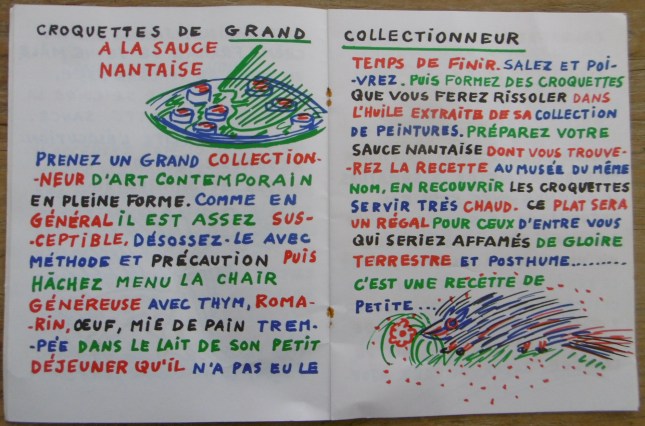 CROQUETTES DE GRAND
À LA SAUCE
NANTAISE
PRENEZ UN GRAND COLLECTION-
-NEUR D'ART CONTEMPORAIN
EN PLEINE FORME. COMME EN
GÉNÉRAL IL EST ASSEZ SUS-
-CEPTIBLE, DÉSOSSEZ-LE AVEC
MÉTHODE ET PRÉCAUTION PUIS
HÂCHEZ MENU LA CHAIR
GÉNÉREUSE AVEC THYM, ROMA-
-RIN, ŒUF, MIE DE PAIN TREM-
-PÉE DANS LE LAIT DE SON PETIT
DÉJEUNER QU'IL N'A PAS EU LE
COLLECTIONNEUR
TEMPS DE FINIR. SALEZ ET POI-
-VREZ. PUIS FORMEZ DES CROQUETTES
QUE VOUS FEREZ RISSOLER DANS
L'HUILE EXTRAITE DE SA COLLECTION
DE PEINTURES. PRÉPAREZ VOTRE
SAUCE NANTAISE DONT VOUS TROUVE-
-REZ LA RECETTE AU MUSÉE DU MÊME
NOM, EN RECOUVRIR LES CROQUETTES
SERVIR TRÈS CHAUD. CE PLAT SERA
UN RÉGAL POUR CEUX D'ENTRE VOUS
QUI SERIEZ AFFAMÉS DE GLOIRE
TERRESTRE ET POSTHUME.........
C'EST UNE RECETTE DE
PETITE...